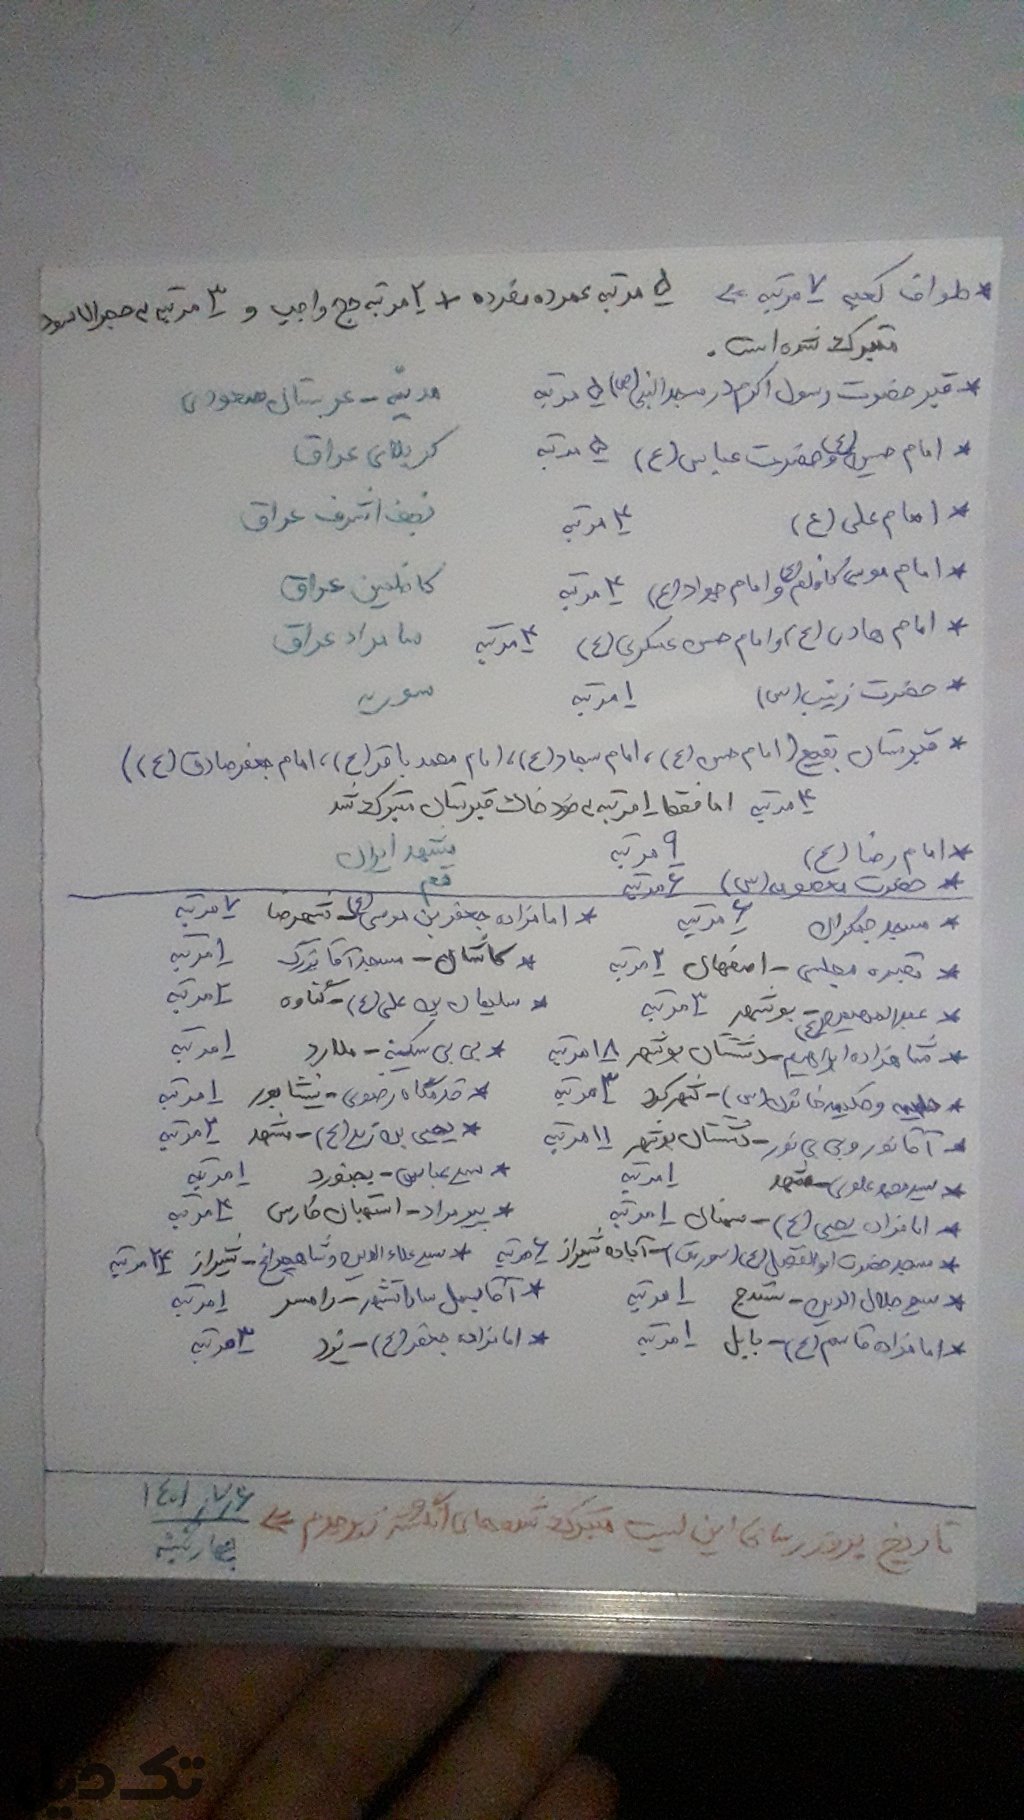 * طواف کعبه ۷ مرتبه ← ۵ مرتبه عمره مفرده + ۲ مرتبه حج واجب و ۳ مرتبه به حجرالاسود
متبرک شده است.
* قبر حضرت رسول اکرم در مسجد النبی (ص) ۵ مرتبه مدینه - عربستان سعودی
* امام حسین (ع) و حضرت عباس (ع) ۵ مرتبه کربلای عراق
* امام علی (ع) ۴ مرتبه نجف اشرف عراق
* امام موسی کاظم (ع) و امام جواد (ع) ۴ مرتبه کاظمین عراق
* امام هادی (ع) و امام حسن عسکری (ع) ۴ مرتبه سامراء عراق
* حضرت زینب (س) ۱ مرتبه سوریه
* قبرستان بقیع (امام حسن (ع)، امام سجاد (ع)، امام محمد باقر (ع)، امام جعفر صادق (ع))
۴ مرتبه اما فقط ۱ مرتبه به خود خاک قبرستان متبرک شد
* امام رضا (ع) ۹ مرتبه مشهد ایران
* حضرت معصومه (س) ۶ مرتبه قم
* مسجد جمکران ۶ مرتبه * امامزاده جعفر بن موسی (ع) - شهرضا ۷ مرتبه
* مقبره مجلسی - اصفهان ۲ مرتبه * کاشان - مسجد آقا بزرگ ۱ مرتبه
* عبدالمهیمن (ع) - بوشهر ۳ مرتبه * سلیمان بن علی (ع) - گناوه ۲ مرتبه
* شاهزاده ابراهیم - دشتستان بوشهر ۱۸ مرتبه * بی بی سکینه - ملارد ۱ مرتبه
* حلیمه و حکیمه خاتون (س) - شهرکرد ۳ مرتبه * قدمگاه رضوی - نیشابور ۱ مرتبه
* آقا نور و بی بی نور - دشتستان بوشهر ۱۱ مرتبه * یحیی بن زید (ع) - مشهد ۲ مرتبه
* سید محمد علوی - مشهد ۱ مرتبه * سید عباس - بجنورد ۱ مرتبه
* امامزاده یحیی (ع) - سمنان ۱ مرتبه * پیر مراد - استهبان فارس ۴ مرتبه
* مسجد حضرت ابوالفضل (ع) (سورمق) - آباده شیراز ۶ مرتبه * سید علاء الدین و شاهچراغ - شیراز ۲۴ مرتبه
* سید جلال الدین - سنندج ۱ مرتبه * آقا بسمل ساداتشهر - رامسر ۱ مرتبه
* امامزاده قاسم (ع) - بابل ۱ مرتبه * امامزاده جعفر (ع) - یزد ۳ مرتبه
تاریخ بروز رسانی این لیست متبرک شده های انگشتر زبرجدم ← ۱۴۰۱/۷/۶
چهارشنبه
تک دیل